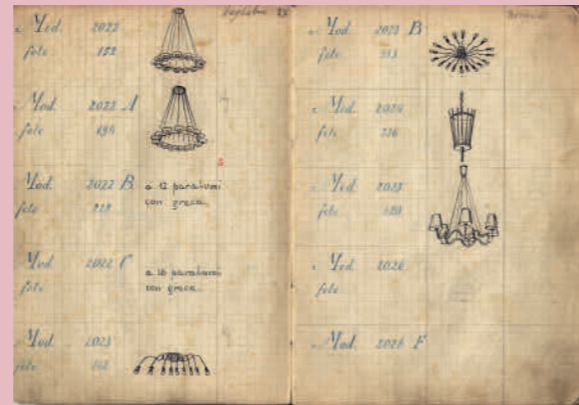 Mod. 2022
foto 152
Mod. 2022 A
foto 194
Mod. 2022 B
foto
a 12 paralumi
con greca
Mod. 2022 C
foto
a 18 paralumi
con greca
Mod. 2023
foto
Mod. 2023 B
foto
Mod. 2024
foto
Mod. 2025
foto
Mod. 2026
foto
Mod. 2026 F